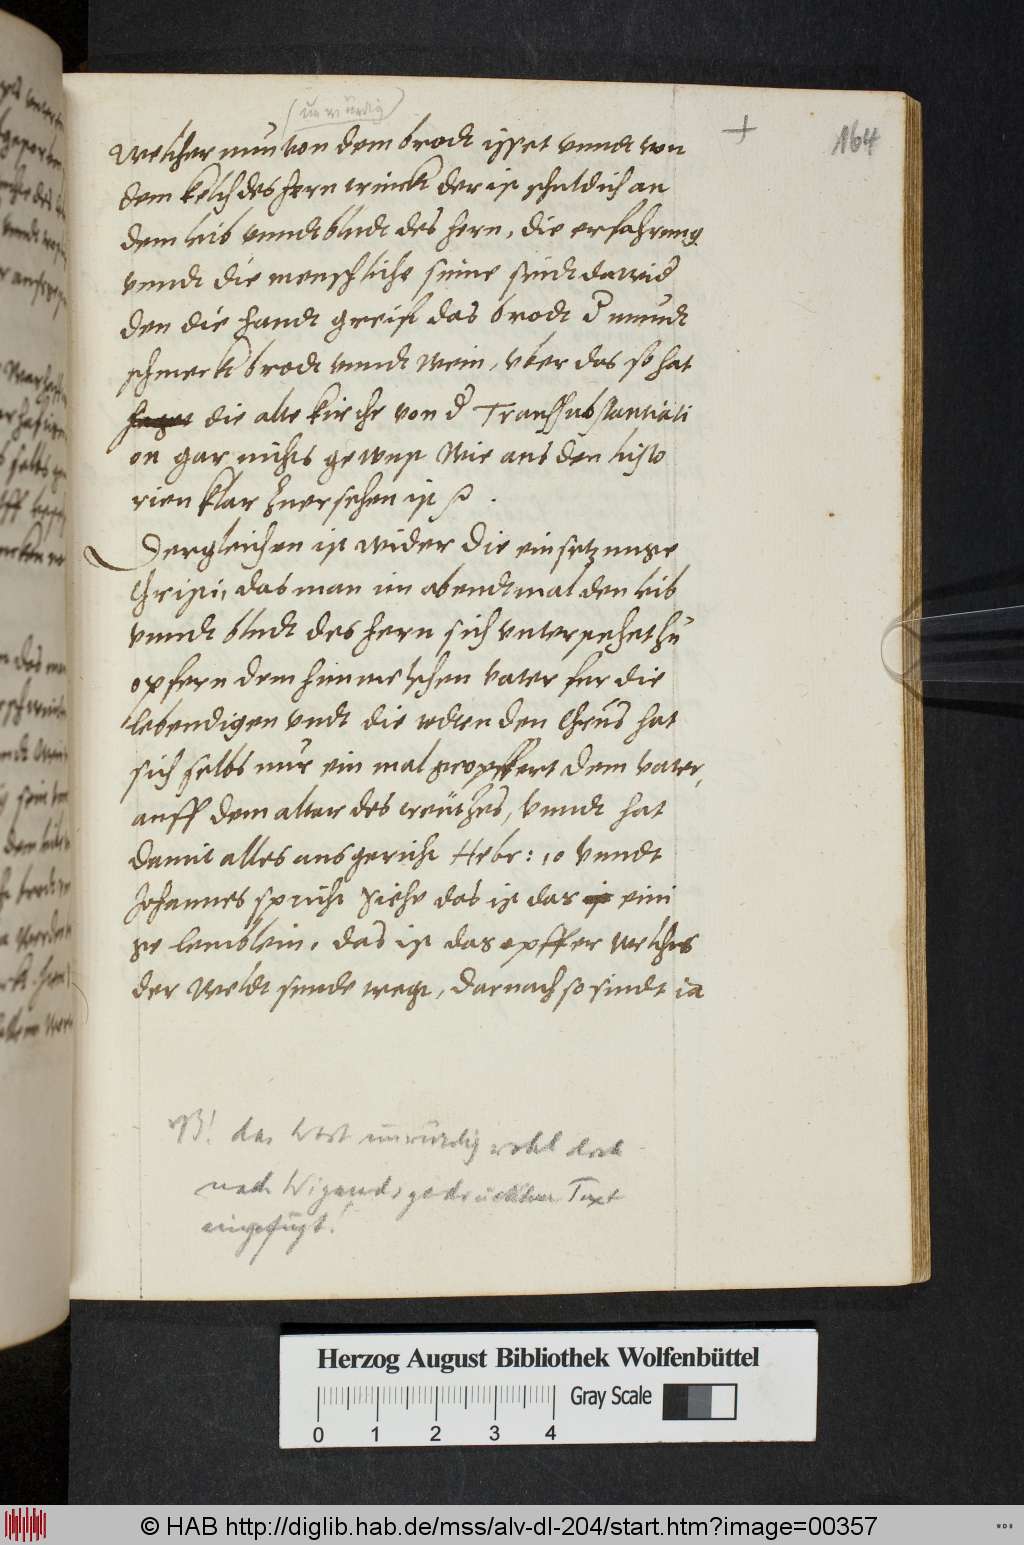 (unwürdig)
164
Welcher nun von dem brodt isset vnndt von
dem kelch des hern trinckt der ist schuldich an
dem leib vnndt bludt des hern, die erfahrung
vnndt die menschliche sinne sindt dawid
den die handt greift das brodt d mundt
schmeckt brodt vnndt wein, vber das so hat
die alte kirche von d Transsubstantiati
on gar nichts gewust Wie aus den histo
rien klar zuersehen ist
Dergleichen ist wider die einsetzunge
Christi, das man im abendtmal den leib
vnndt bludt des hern sich vnterstehet zu
opfern dem himmelschen vater fur die
lebendigen vndt die todten den Chrus hat
sich selbs nur ein mal geopffert dem vater,
auff dem altar des creützes, vnndt hat
damit alles ausgericht Hebr: 10 vnndt
Johannes spricht Siehe das ist das eini
ge lemblein, das ist das opffer welchs
der Weldt sunde tregt, darnach so sindt ia
NB! das Wort unwürdig wohl doch
nach Wigands gedrucktem Text
eingefügt!
Herzog August Bibliothek Wolfenbüttel
Gray Scale
0 1 2 3 4
© HAB http://diglib.hab.de/mss/alv-dl-204/start.htm?image=00357